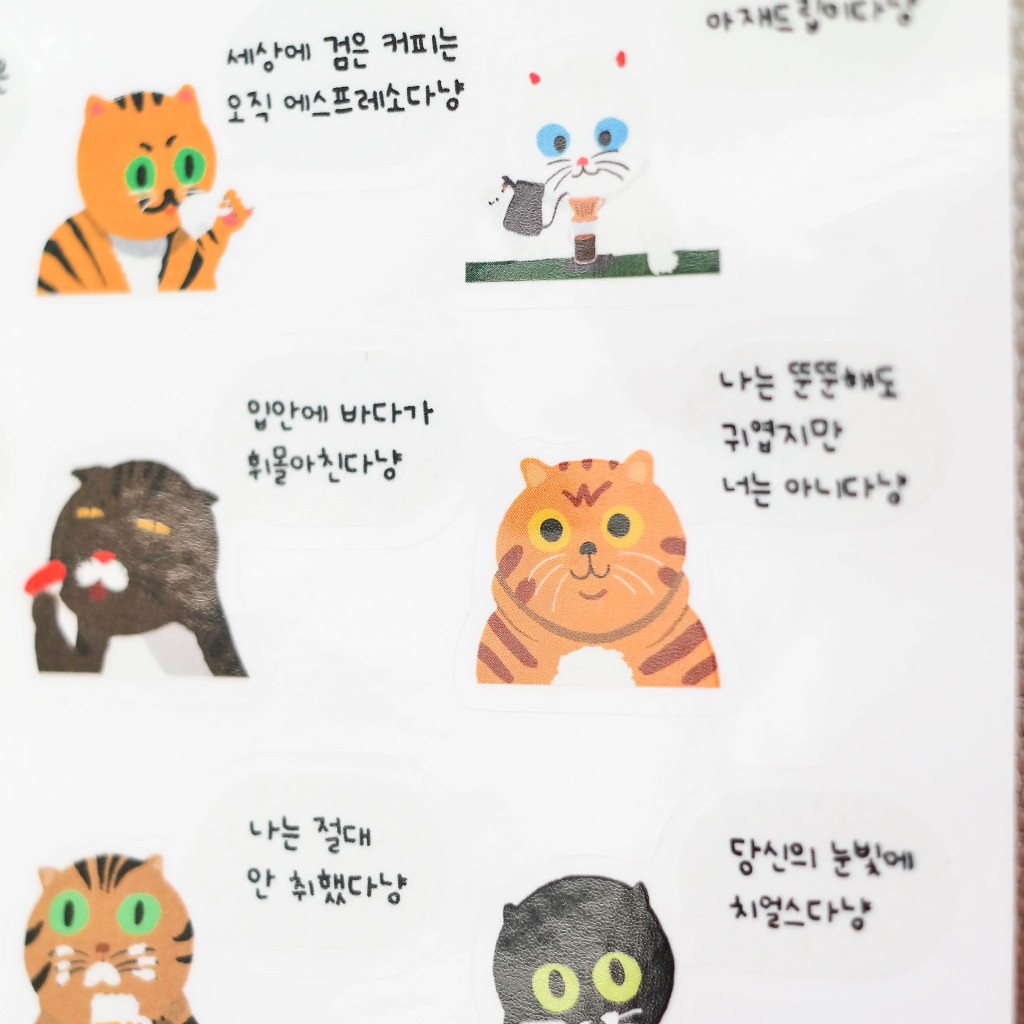 세상에 검은 커피는
오직 에스프레소다냥
아재드립이다냥
입안에 바다가
휘몰아친다냥
나는 뚠뚠해도
귀엽지만
너는 아니다냥
나는 절대
안 취했다냥
당신의 눈빛에
치얼스다냥